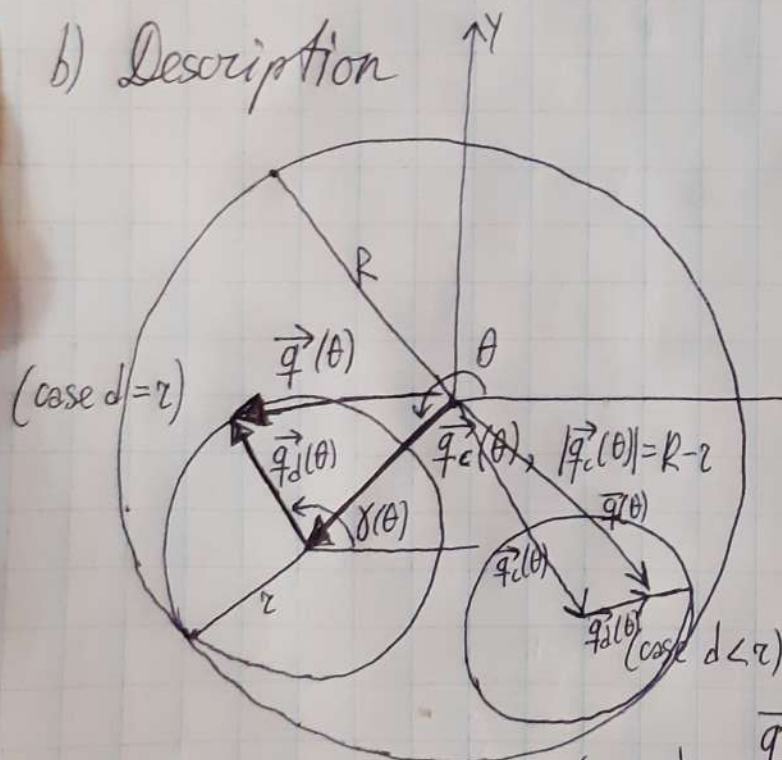 b) Description
Y
R
θ
q⃗(θ)
(case d=r)
q⃗d(θ)
q⃗c(θ), |q⃗c(θ)|=R-r
γ(θ)
q⃗(θ)
q⃗c(θ)
r
q⃗d(θ)
(case d<r)